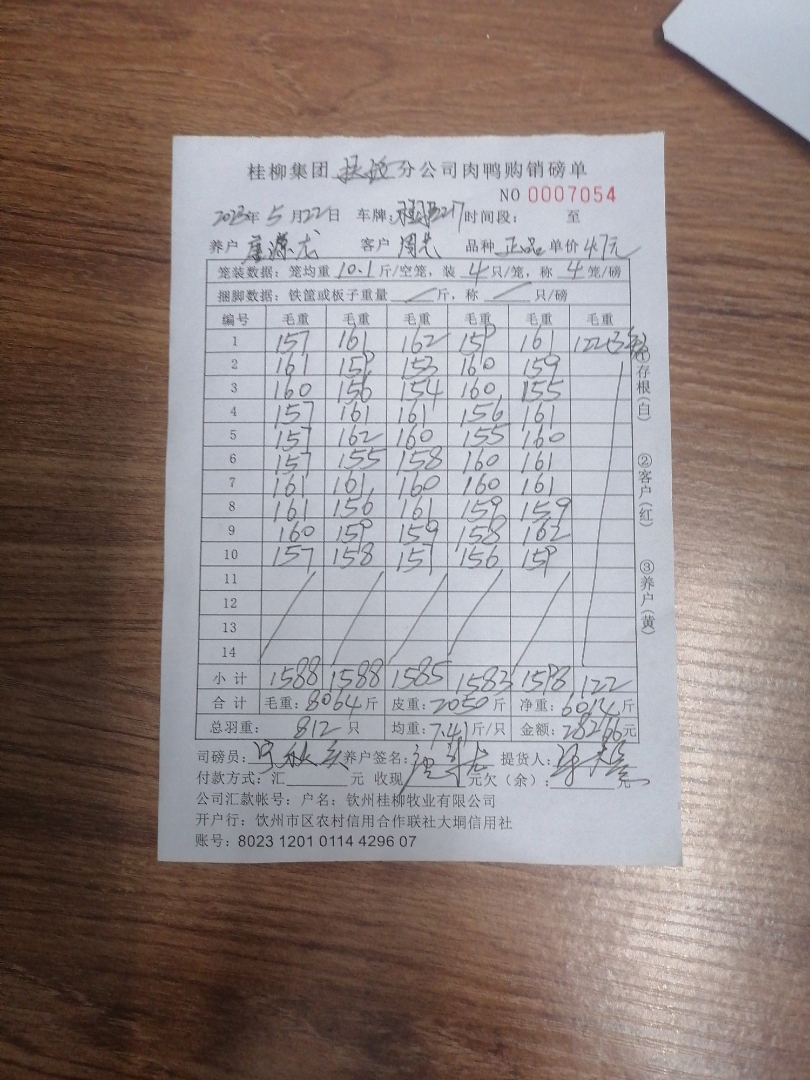 桂柳集团 分公司肉鸭购销磅单
NO 0007054
2023年 5月22日 车牌: 217 时间段: 至
养户 唐源龙 客户 周光 品种 正品 单价 4.7元
笼装数据: 笼均重 10.1 斤/空笼, 装 4 只/笼, 称 4 笼/磅
捆脚数据: 铁筐或板子重量 / 斤, 称 / 只/磅
编号 毛重 毛重 毛重 毛重 毛重 毛重
1 157 161 162 159 161 122
2 161 159 153 160 159
3 160 156 154 160 155
4 157 161 161 156 161
5 157 162 160 155 160
6 157 155 158 160 161
7 161 161 160 160 161
8 161 156 161 159 159
9 160 159 159 158 162
10 157 158 157 156 159
11
12
13
14
小计 1588 1588 1585 1583 1598 122
合计 毛重: 8064 斤 皮重: 2050 斤 净重: 6014 斤
总羽重: 812 只 均重: 7.41 斤/只 金额: 28266 元
司磅员: 养户签名: 提货人:
付款方式: 汇 元 收现 元欠(余): 元
公司汇款帐号: 户名: 钦州桂柳牧业有限公司
开户行: 钦州市区农村信用合作联社大垌信用社
账号: 8023 1201 0114 4296 07
①存根(白) ②客户(红) ③养户(黄)